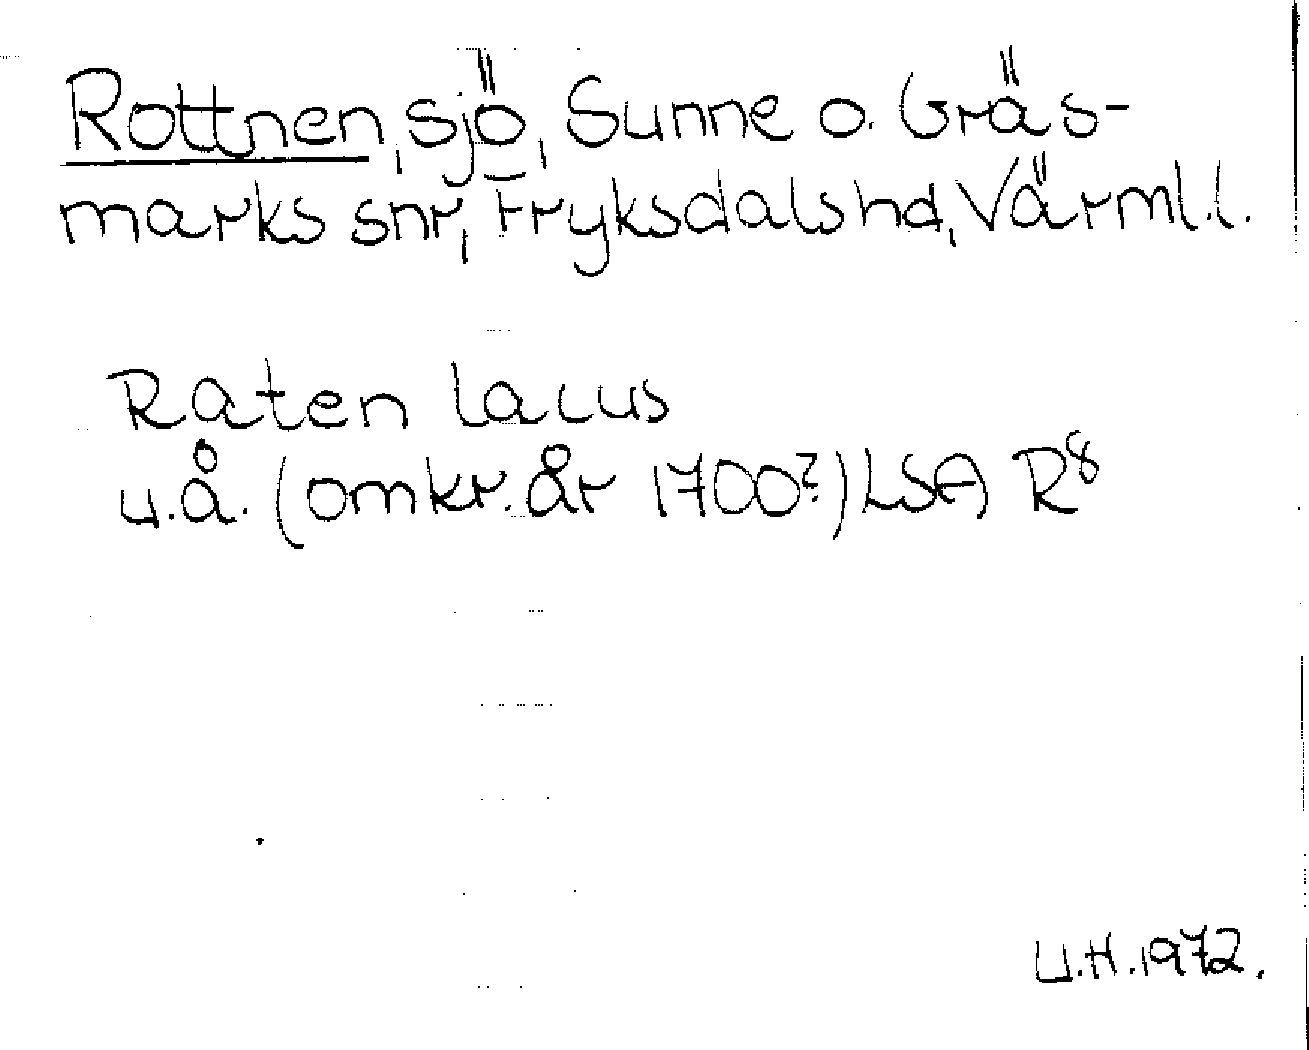 Rottnen, sjö, Sunne o. Gräs-
marks snr, Fryksdals hd, Värml.l.
Raten lacus
u.å. (omkr. år 1700?) LSA R8
U.H. 1972.